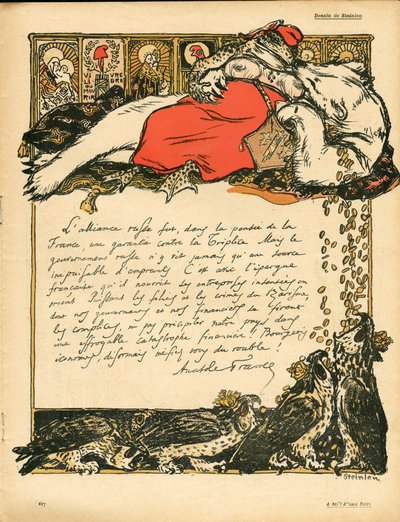 Dessin de Steinlen
L'alliance russe fut, dans la pensée de la
France une garantie contre la Triplice. Mais le
gouvernement russe n'y vit jamais qu'une source
inépuisable d'emprunts. C'est avec l'épargne
française qu'il nourrit les entreprises insensées en
orient. Puissent les folies et les crimes du tsarisme,
dont nos gouvernants et nos financiers se firent
les complices, ne pas précipiter notre pays dans
une effroyable catastrophe financière! Bourgeois
économes, désormais méfiez vous du rouble!
Anatole France
Steinlen